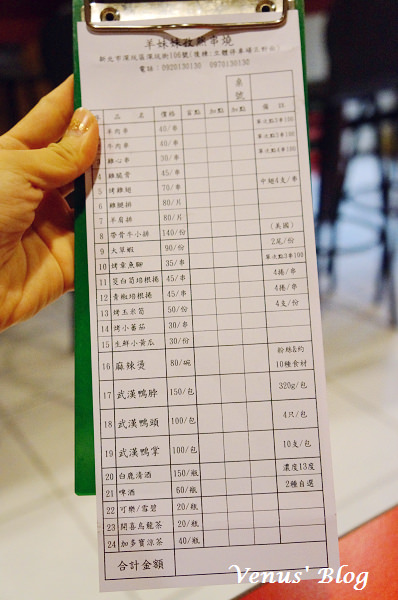 羊妹妹孜然串燒
新北市深坑區深坑街106號(後棟:立體停車場正對面)
電話:0920130130 0970130130
桌號
序 品名 價格 首點 加點 加點 備註
1 羊肉串 40/串 單次點3串100
2 牛肉串 40/串 單次點3串100
3 雞心串 30/串 單次點4串100
4 雞腿骨 45/串
5 烤雞翅 70/串 中翅4支/串
6 雞腿排 80/片
7 羊肩排 80/片
8 帶骨牛小排 140/份 (美國)
9 大草蝦 90/份 2尾/份
10 烤章魚腳 35/串 單次點3串100
11 筊白筍培根捲 45/串 4捲/串
12 青椒培根捲 45/串 4捲/串
13 烤玉米筍 50/份 4支/份
14 烤小蕃茄 30/串
15 生鮮小黃瓜 30/份
16 麻辣燙 80/碗 粉絲&約10種食材
17 武漢鴨脖 150/包 320g/包
18 武漢鴨頭 100/包 4只/包
19 武漢鴨掌 100/包 10支/包
20 白鹿清酒 150/瓶 濃度13度
21 啤酒 60/瓶 2種自選
22 可樂/雪碧 20/瓶
23 開喜烏龍茶 20/瓶
24 加多寶涼茶 40/瓶
合計金額
Venus' Blog